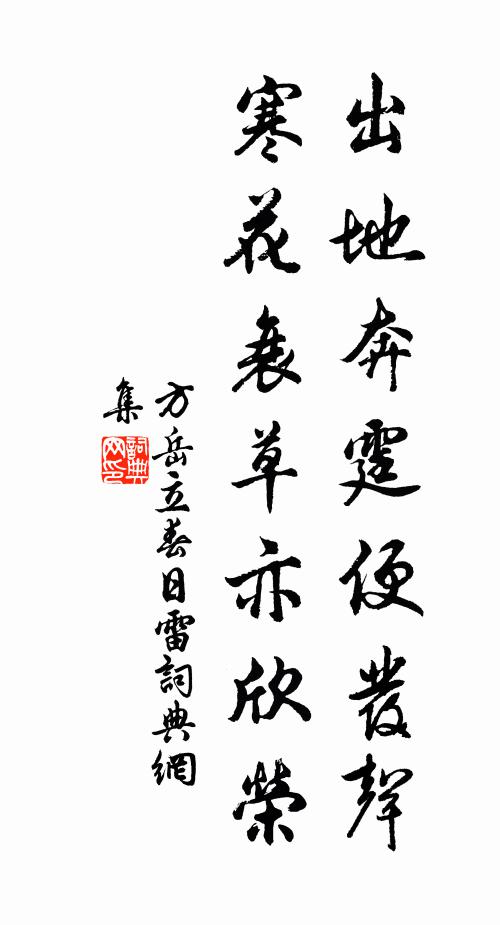 出地奔霆便發聲
寒花衰草亦欣榮
方岳立春日雷詞典網
集
詞典網印